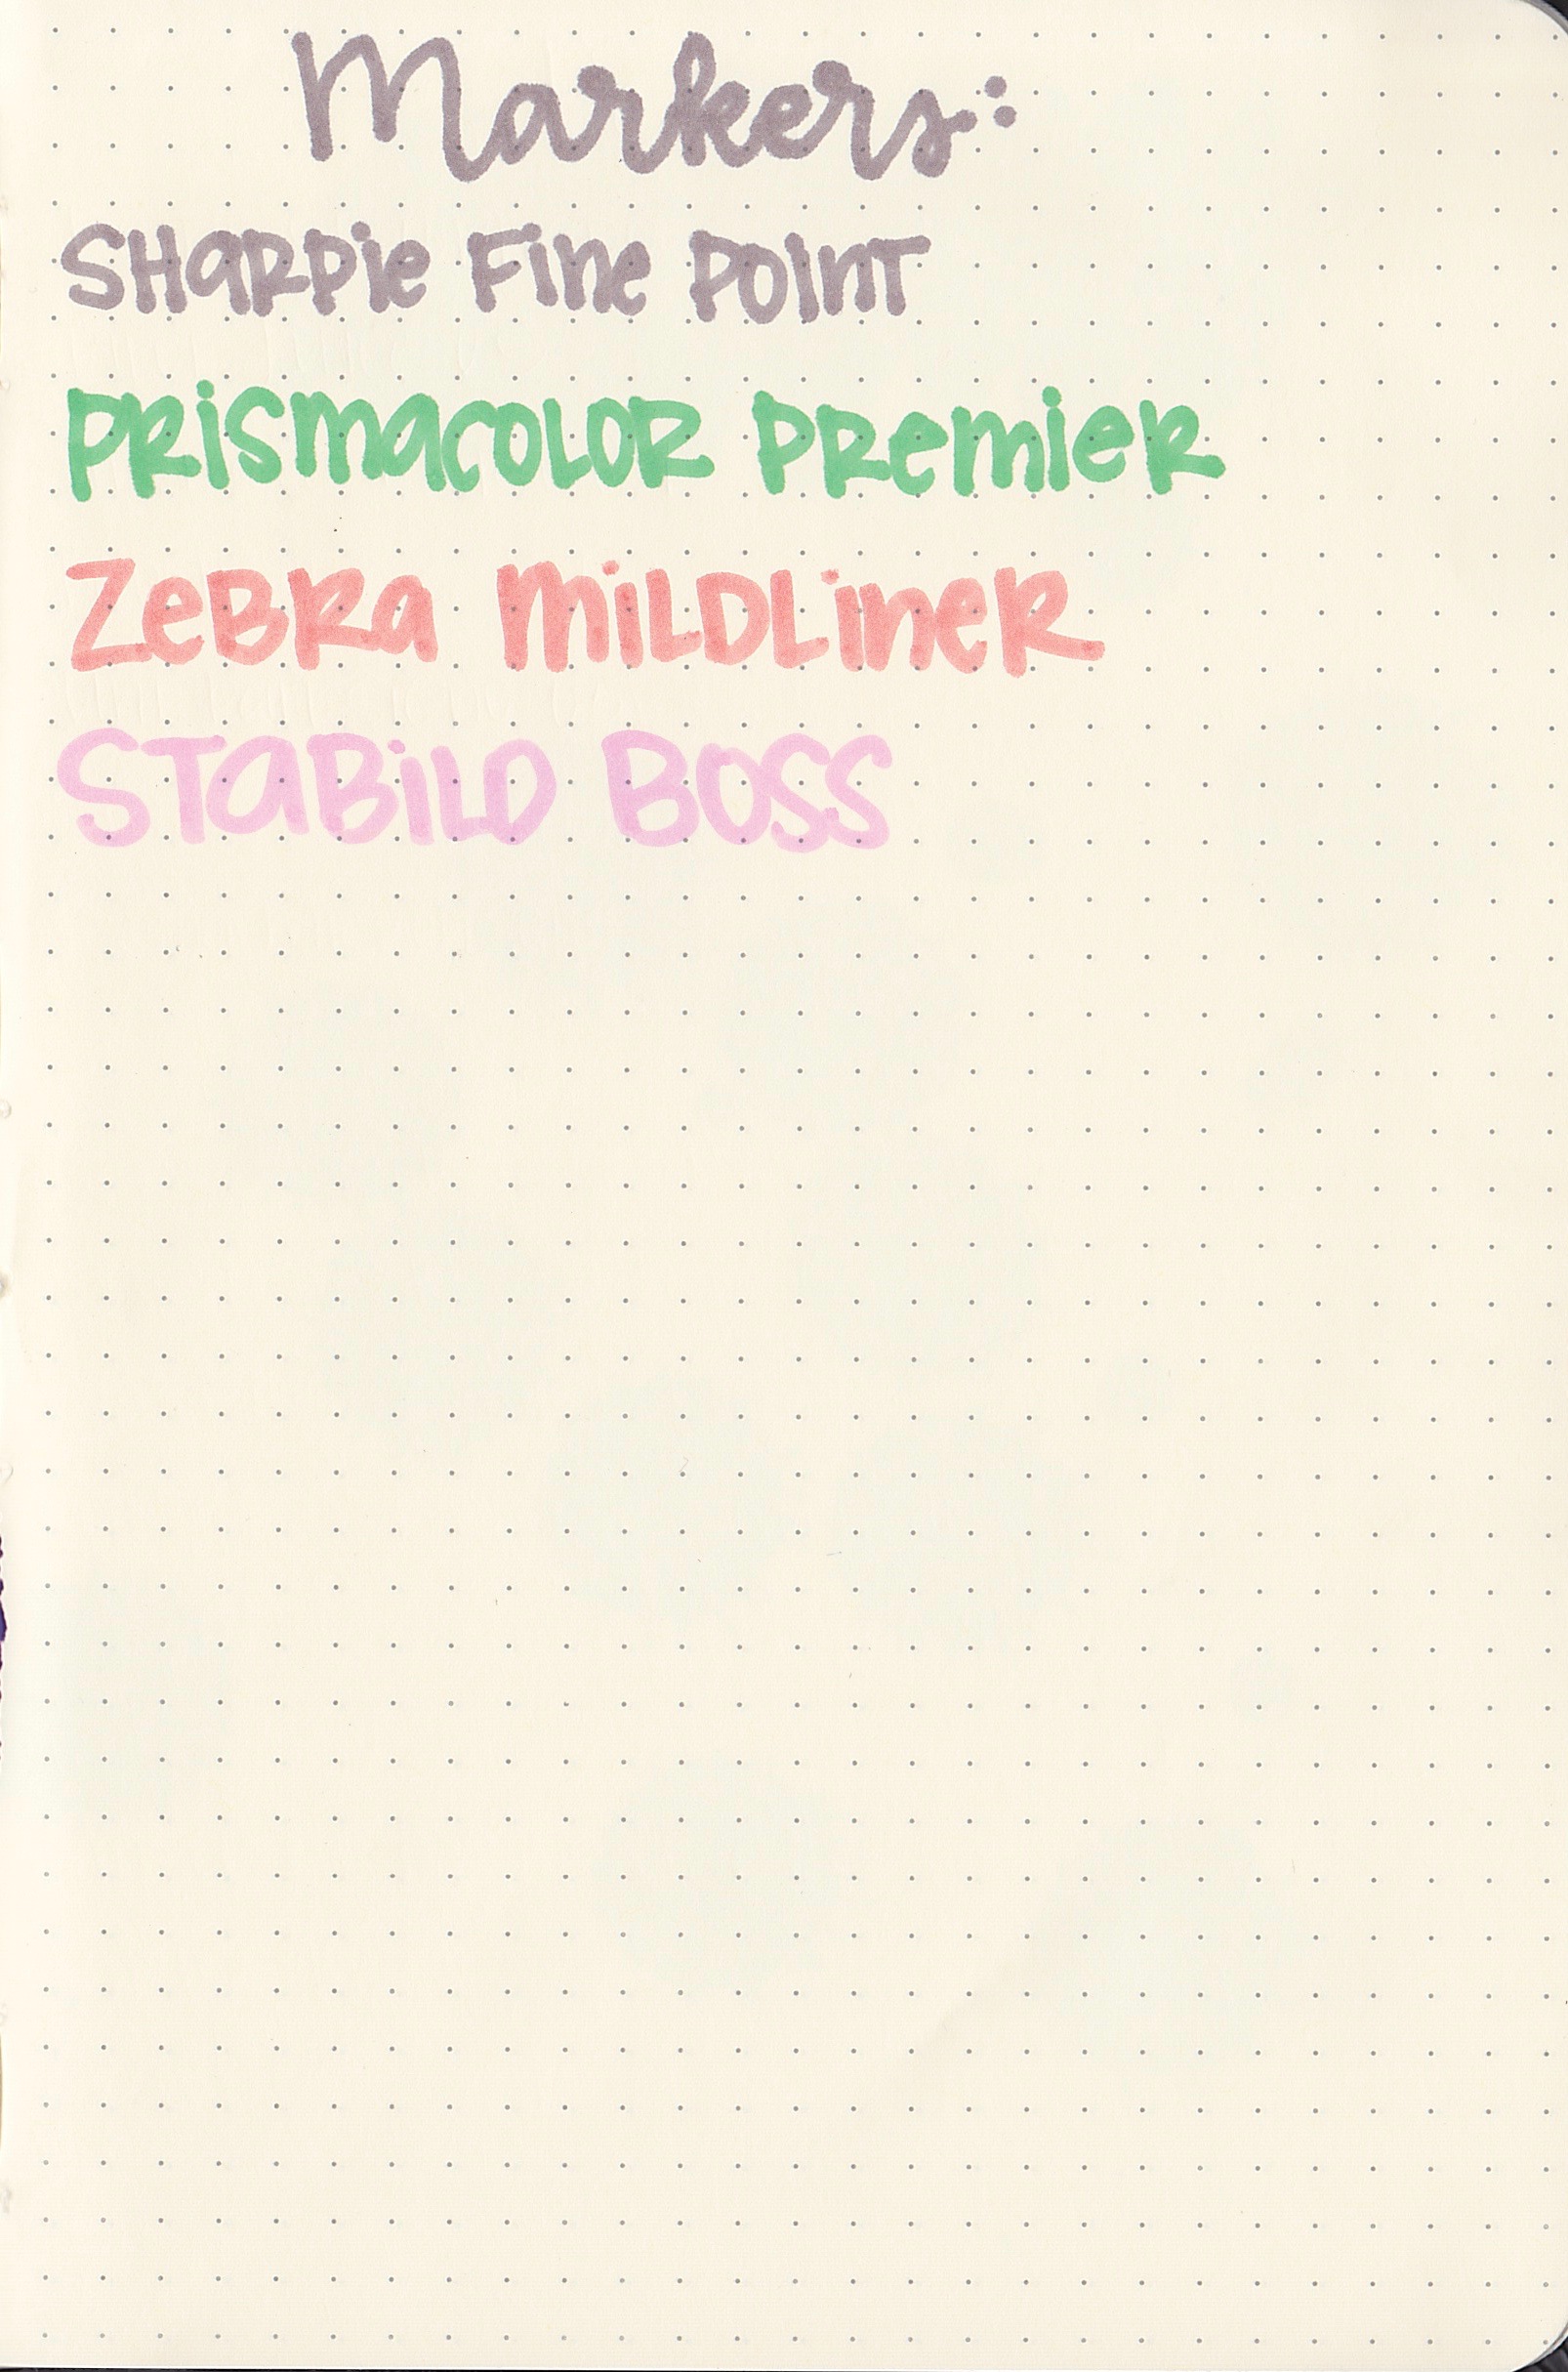 Markers:
SHARPie Fine POINT
PRismacoLOR PRemieR
ZeBRa miLDLineR
STaBiLO BOSS